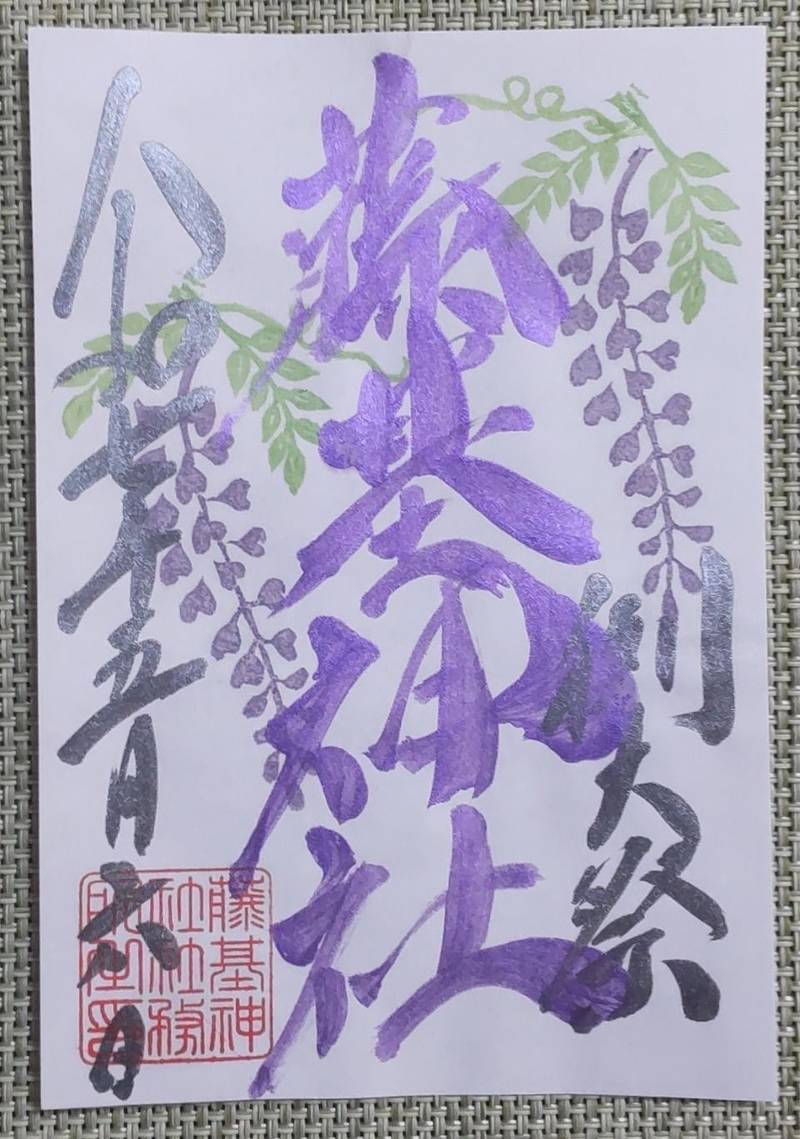 例大祭
藤基神社
令和七年五月六日
藤基神
社社務